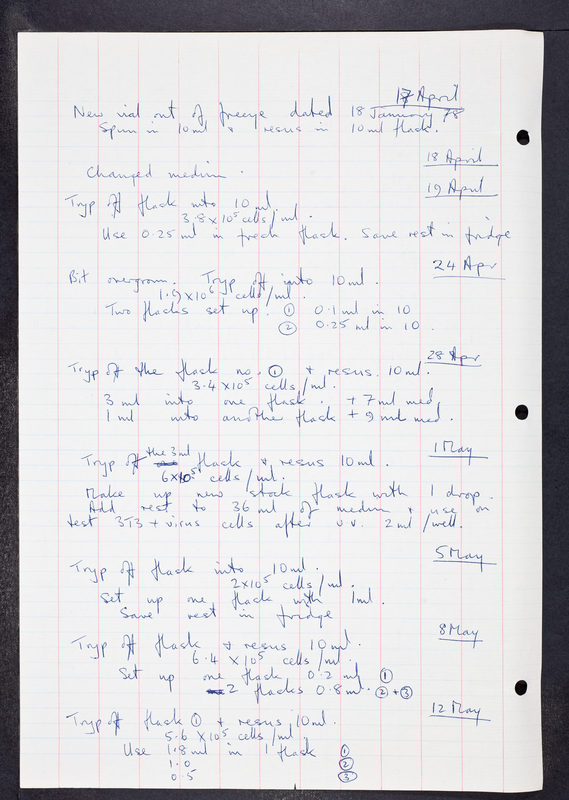 17 April
New vial out of freeze dated 18 January 78
Spun in 10 ml & resus in 10 ml flask.
18 April
Changed medium.
19 April
Tryp off flask into 10 ml.
3.8 x 10⁵ cells/ml.
Use 0.25 ml in fresh flask. Save rest in fridge
24 Apr
Bit overgrown. Tryp off into 10 ml.
1.9 x 10⁶ cells/ml.
Two flasks set up. ① 0.1 ml in 10
② 0.25 ml in 10.
28 Apr
Tryp off the flask no. ① & resus. 10 ml.
3.4 x 10⁵ cells/ml.
3 ml into one flask. + 7 ml med
1 ml into another flask + 9 ml med.
1 May
Tryp off the 3 ml flask & resus 10 ml.
6 x 10⁵ cells/ml.
Make up new stock flask with 1 drop.
Add rest to 36 ml of medium & use on
test 3T3 + virus cells after u.v. 2 ml/well.
5 May
Tryp off flask into 10 ml.
2 x 10⁵ cells/ml.
Set up one flask with 1 ml.
Save rest in fridge
8 May
Tryp off flask & resus 10 ml.
6.4 x 10⁵ cells/ml.
Set up one flask 0.2 ml ①
2 flasks 0.8 ml. ② + ③
12 May
Tryp off flask ① & resus 10 ml.
5.6 x 10⁵ cells/ml.
Use 1.8 ml in 1 flask ①
1.0 ②
0.5 ③